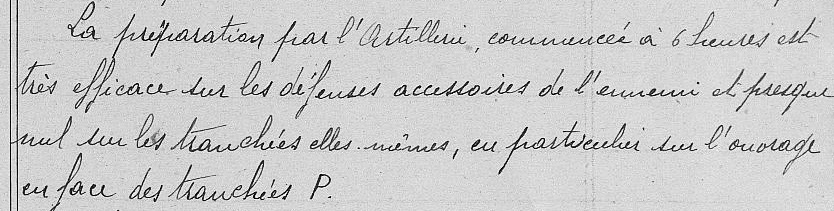 La préparation par l'Artillerie, commencée à 6 heures est
très efficace sur les défenses accessoires de l'ennemi et presque
nul sur les tranchées elles-mêmes, en particulier sur l'ouvrage
en face des tranchées P.